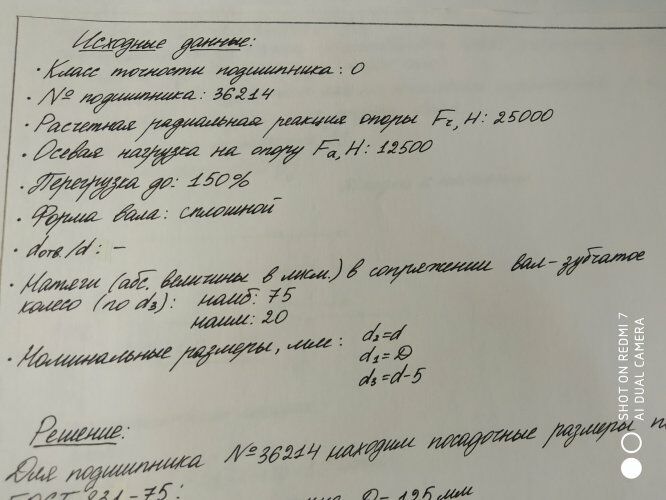 Исходные данные:
· Класс точности подшипника: 0
· № подшипника: 36214
· Расчетная радиальная реакция опоры Fr, Н: 25000
· Осевая нагрузка на опору Fa, Н: 12500
· Перегрузка до: 150%
· Форма вала: сплошной
· dотв/d: –
· Натяги (абс. величины в мкм.) в сопряжении вал-зубчатое
колесо (по d3): наиб: 75
наим: 20
· Номинальные размеры, мм: d2=d
d1=D
d3=d-5
Решение:
Для подшипника №36214 находим посадочные размеры
ГОСТ 831-75: D=125мм
SHOT ON REDMI 7
AI DUAL CAMERA